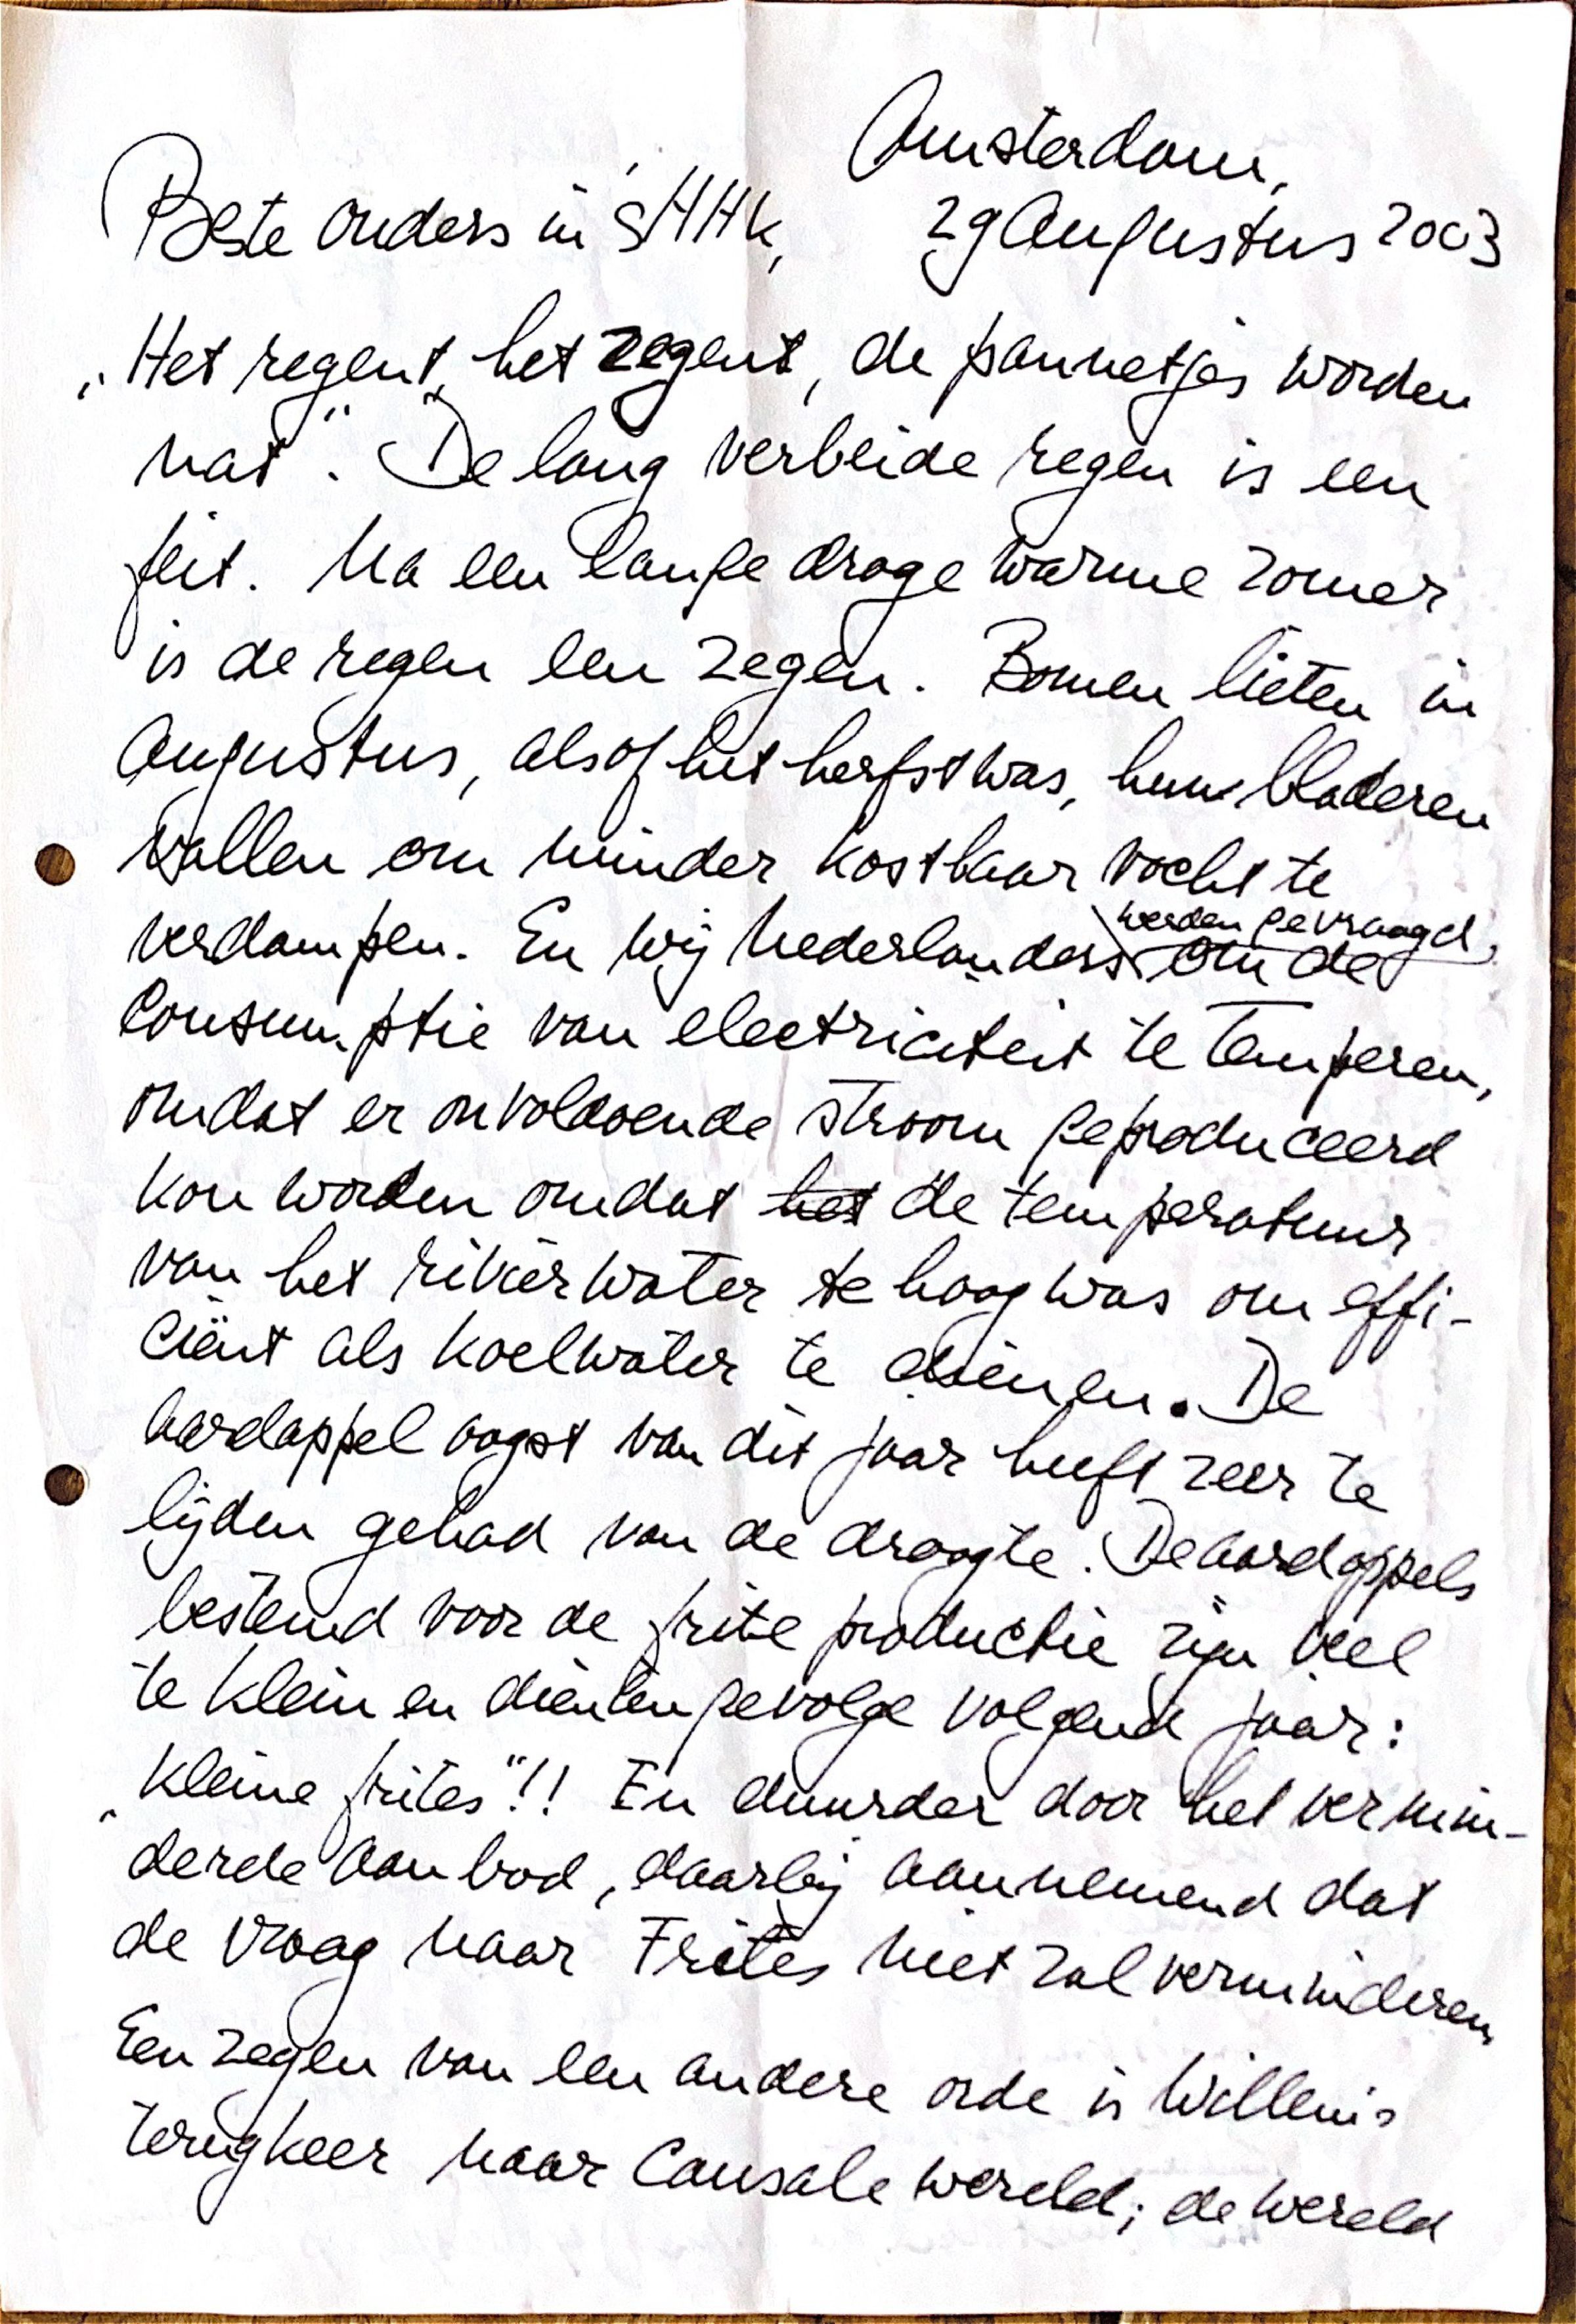 Amsterdam,
Beste ouders in 'sHHK, 29 Augustus 2003
„Het regent, het zegent, de pannetjes worden
nat". De lang verbeide regen is een
feit. Na een lange droge warme zomer
is de regen een zegen. Bomen lieten in
Augustus, alsof het herfst was, hun bladeren
vallen om minder kostbaar vocht te
werden gevraagd,
verdampen. En wij Nederlanders om de
Consumptie van electriciteit te temperen,
omdat er onvoldoende stroom geproduceerd
kon worden omdat het de temperatuur
van het rivierwater te hoog was om effi-
ciënt als koelwater te dienen. De
aardappel oogst van dit jaar heeft zeer te
lijden gehad van de droogte. De aardappels
bestemd voor de frite productie zijn veel
te klein en dientengevolge volgend jaar:
„kleine frites"!! En duurder door het vermin-
derde aanbod, daarbij aannemend dat
de vraag naar Frites niet zal verminderen.
Een zegen van een andere orde is Willem's
terugkeer naar Causale wereld; de wereld